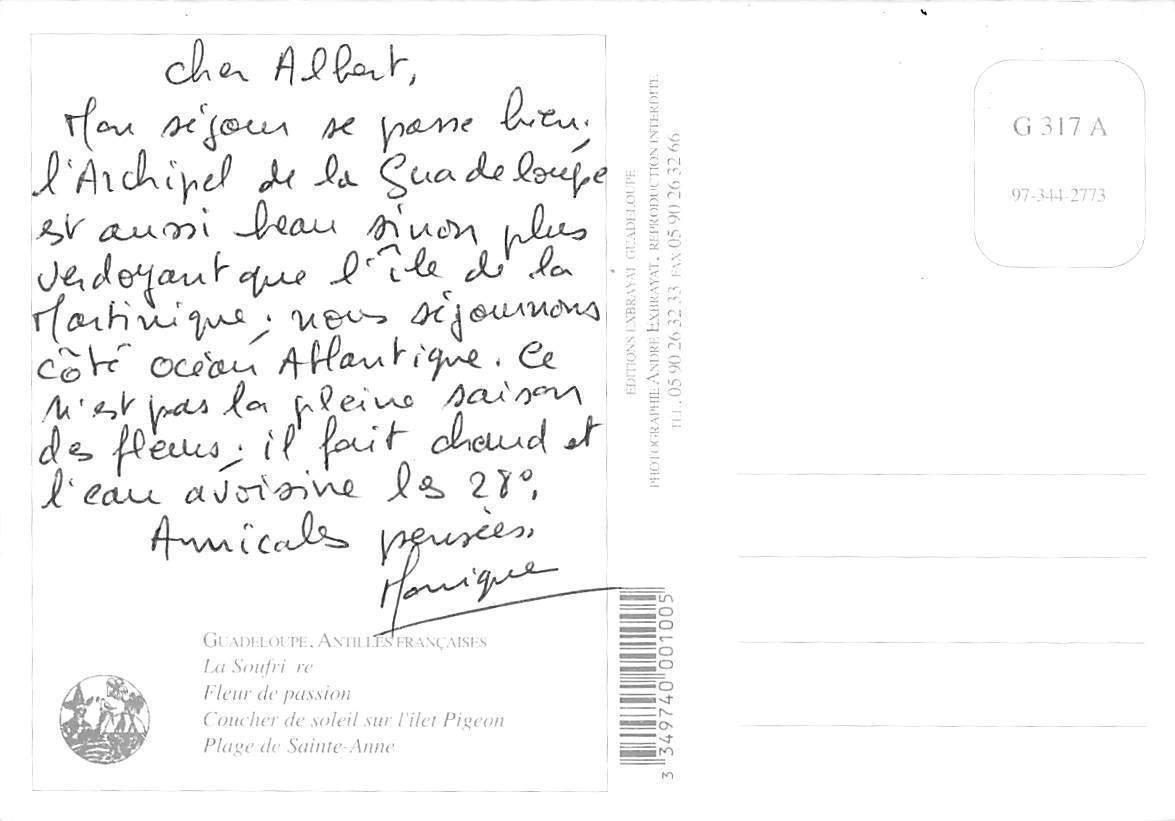 cher Albert,
Mon séjour se passe bien;
l'Archipel de la Guadeloupe
est aussi beau sinon plus
verdoyant que l'île de la
Martinique; nous séjournons
côté océan Atlantique. Ce
n'est pas la pleine saison
des fleurs; il fait chaud et
l'eau avoisine les 28°.
Amicales pensées.
Monique
GUADELOUPE, ANTILLES FRANÇAISES
La Soufri re
Fleur de passion
Coucher de soleil sur l'îlet Pigeon
Plage de Sainte-Anne
EDITIONS EXBRAYAT GUADELOUPE
PHOTOGRAPHIE ANDRÉ EXBRAYAT. REPRODUCTION INTERDITE.
TEL. 05 90 26 32 33 FAX 05 90 26 32 66
3 349740 001005
G 317 A
97-344-2773